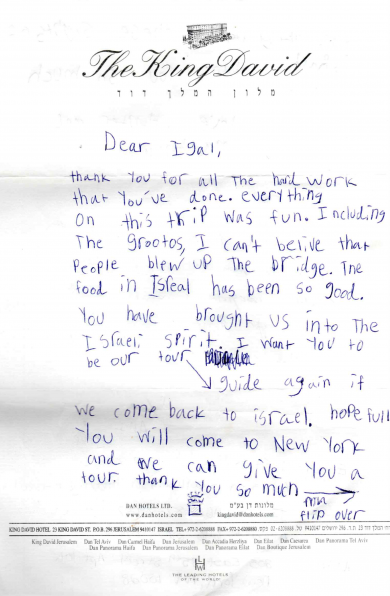 The King David
מלון המלך דוד
Dear Igal,
thank you for all The hard work
that you've done. everything
On this trip was fun. Including
The Grootos, I can't belive that
People blew up The bridge. The
food in Isreal has been so good.
You have brought us into The
Israeli spirit. I want you to
be our tour
guide again if
we come back to israel. hope full
You will come to New York
and we can give you a
tour. thank you so much
flip over
DAN HOTELS LTD. מלונות דן בע"מ
www.danhotels.com kingdavid@danhotels.com
KING DAVID HOTEL 23 KING DAVID ST. P.O.B. 296 JERUSALEM 9410147 ISRAEL TEL+972-2-6208888 FAX+972-2-6208880
King David Jerusalem Dan Tel Aviv Dan Carmel Haifa Dan Jerusalem Dan Accadia Herzliya Dan Eilat Dan Caesarea Dan Panorama Tel Aviv
Dan Panorama Haifa Dan Panorama Jerusalem Dan Panorama Eilat Dan Boutique Jerusalem
THE LEADING HOTELS
OF THE WORLD